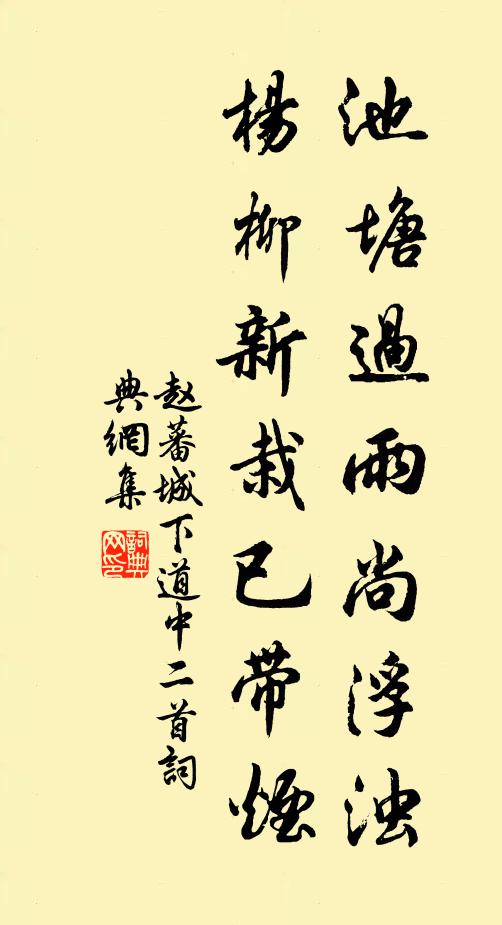 池塘過雨尚浮浊
楊柳新栽已帶煙
赵蕃城下道中二首詞
典網集
詞典
网印